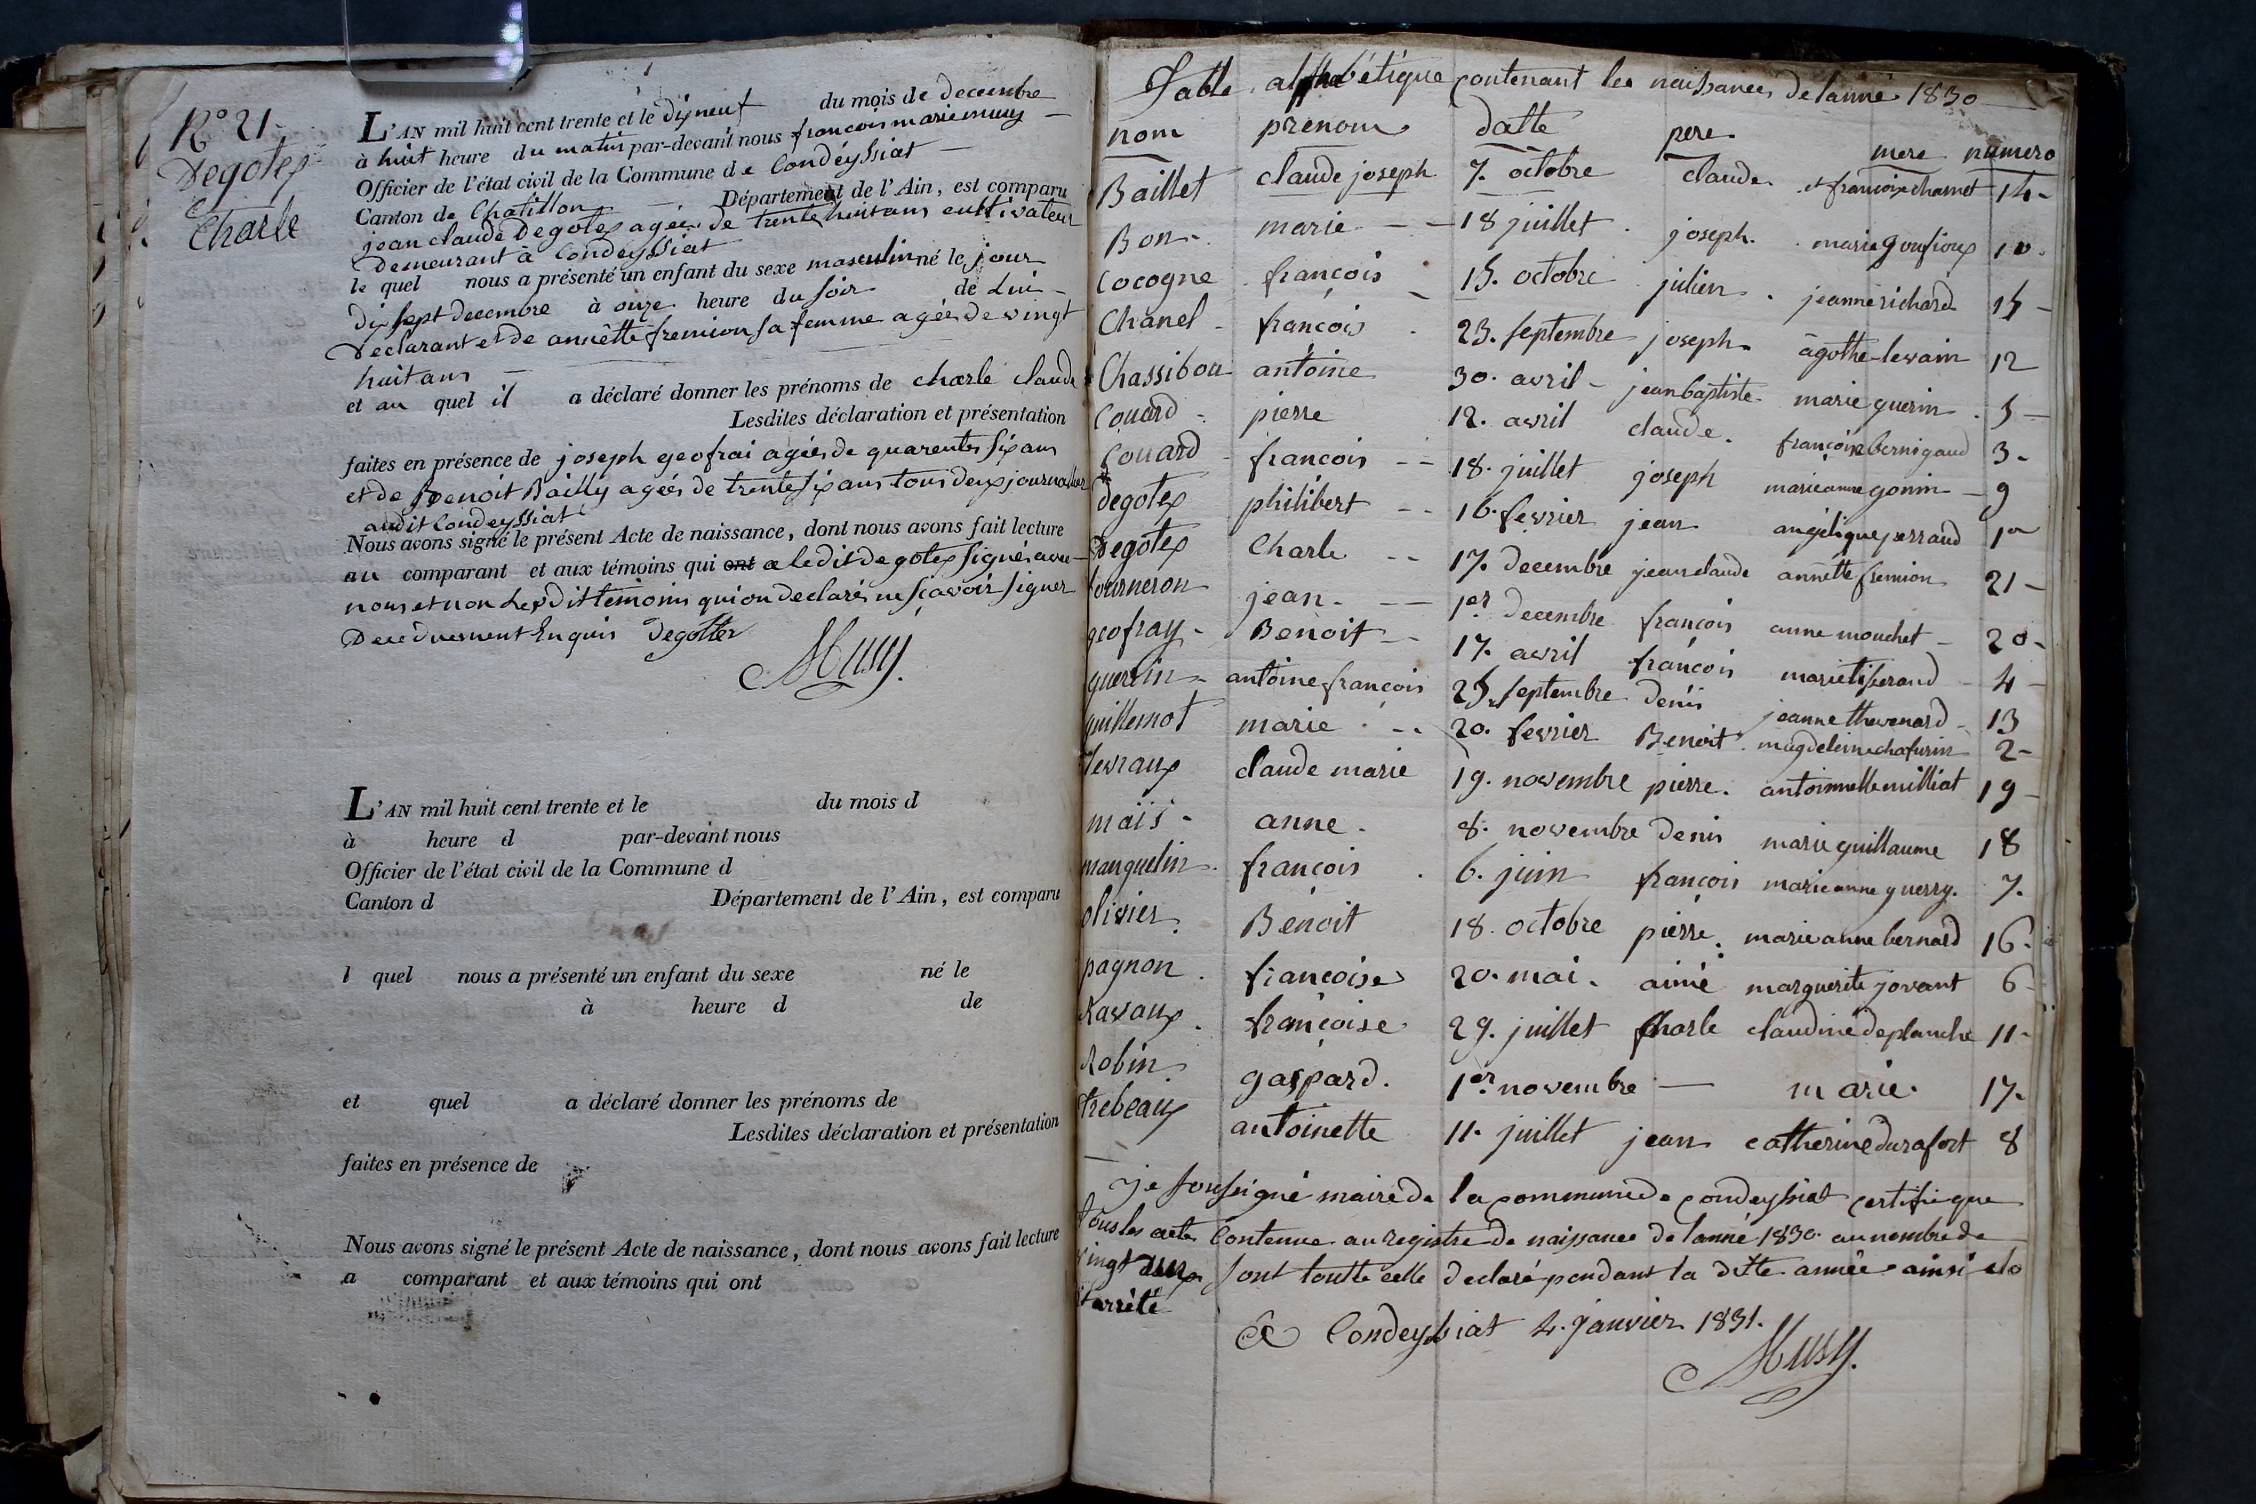 N° 21
Degotex
Charle
L'AN mil huit cent trente et le dixneuf du mois de decembre
à huit heure du matin par-devant nous francois marie musy
Officier de l'état civil de la Commune de Condeyssiat
Canton de Chatillon Département de l'Ain, est comparu
jean claude Degotex agée de trente huit ans cultivateur
demeurant à Condeyssiat
le quel nous a présenté un enfant du sexe masculin né le jour
dix sept decembre à onze heure du soir de Lui
Declarant et de annêtte fremion sa femme agée de vingt
huit ans
et au quel il a déclaré donner les prénoms de charle claude
Lesdites déclaration et présentation
faites en présence de joseph geofrai agées de quarente six ans
et de Benoit Bailly agées de trente six ans tous deux journallier
audit Condeyssiat
Nous avons signé le présent Acte de naissance, dont nous avons fait lecture
au comparant et aux témoins qui ont a ledit degotex signés avec
nous et non Lesdit temoins qui on declarés ne sçavoir signer
De ce duement Enquis degottex
Musy.
L'AN mil huit cent trente et le du mois d
à heure d par-devant nous
Officier de l'état civil de la Commune d
Canton d Département de l'Ain, est comparu
l quel nous a présenté un enfant du sexe né le
à heure d de
et quel a déclaré donner les prénoms de
Lesdites déclaration et présentation
faites en présence de
Nous avons signé le présent Acte de naissance, dont nous avons fait lecture
a comparant et aux témoins qui ont
Table alphabétique contenant les naissances de lanné 1830
nom prenom datte pere mere numero
Baillet claude joseph 7. octobre claude et francoise charnet 14
Bon marie 18 juillet joseph marie 10
Cocogne françois 15. octobre julien jeanne richard 15
Chanel françois 23. septembre joseph agothe levrain 12
Chassibou antoine 30. avril jean baptiste marie guerin 5
Couard pierre 12. avril claude françoise bernigaud 3
Couard françois 18. juillet joseph marie anne gonin 9
degotex philibert 16. fevrier jean angélique perraud 1er
Degotex Charle 17. decembre jean claude annêtte fremion 21
fourneron jean 1er decembre françois anne mouchet 20
geofray Benoit 17. avril françois marie tiserand 4
guerin antoine françois 25 septembre denis jeanne thevenard 13
guillemot marie 20. fevrier Benoit magdeleine chafurin 2
levraux claude marie 19. novembre pierre antoinnette milliat 19
maïs anne 8. novembre denis marie guillaume 18
manquelin françois 6. juin françois marie anne guerry. 7.
olivier Benoit 18. octobre pierre marie anne bernard 16
pagnon françoise 20. mai aimé marguerite jovant 6
Ravaux françoise 29. juillet Charle claudine deplanche 11
Robin gaspard. 1er novembre — marie. 17.
trebeaux antoinette 11. juillet jean catherine durafort 8
je sousigné maire de la commune de condeyssiat certifie que
tous les acte Contenue au registre de naissance de lanné 1830 au nombre de
vingt sont toutte celle declaré pendant la ditte année ainsi clo
et arrêté
a Condeyssiat 4. janvier 1831.
Musy.